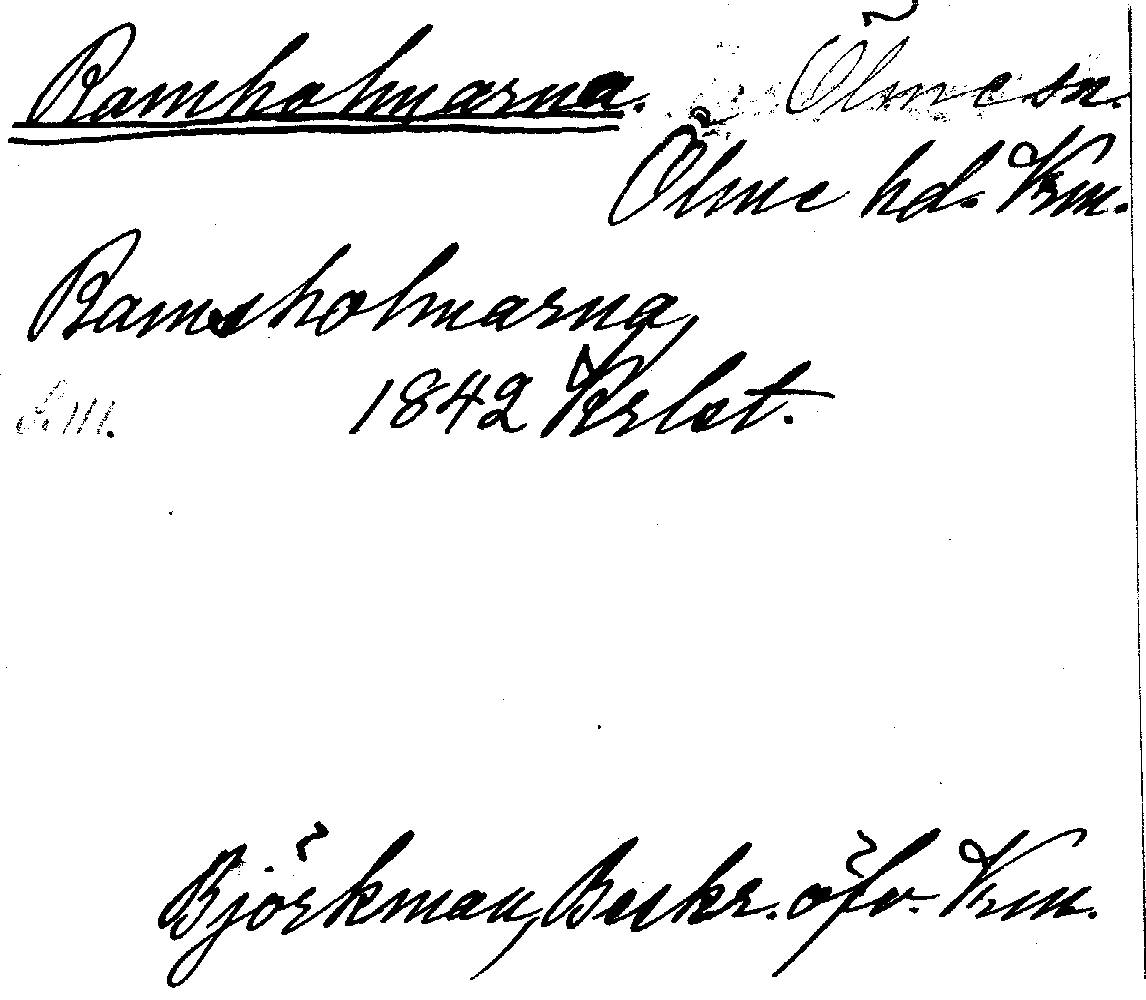 Ramholmarna. Ölme sn.
Ölme hd. Vrm.
Ramsholmarna,
1842 Krlst.
Björkman, Beskr. öfv. Vrm.